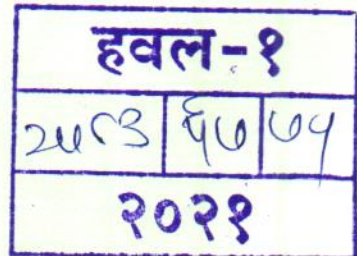 हवल-१
२५८३ ६७ ७५
२०२१